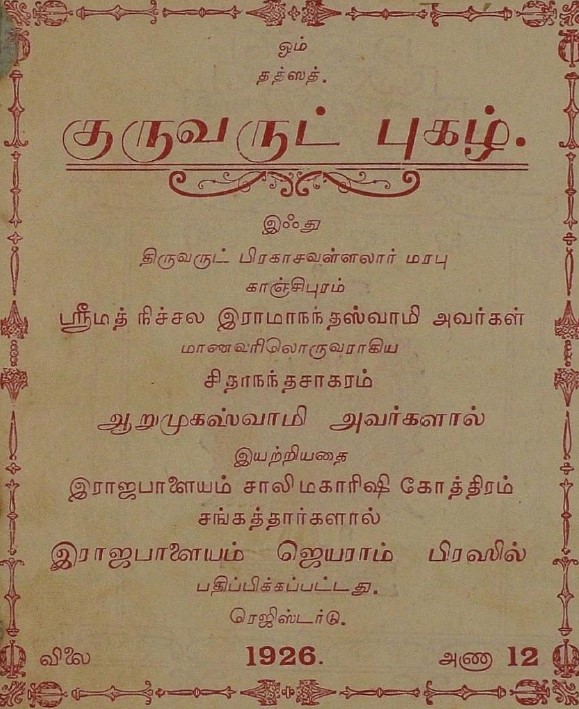 ஓம்
தத்ஸத்.
குருவருட் புகழ்.
இஃது
திருவருட் பிரகாசவள்ளலார் மரபு
காஞ்சிபுரம்
ஸ்ரீமத் நிச்சல இராமாநந்தஸ்வாமி அவர்கள்
மாணவரிலொருவராகிய
சிதாநந்தசாகரம்
ஆறுமுகஸ்வாமி அவர்களால்
இயற்றியதை
இராஜபாளையம் சாலிமகாரிஷி கோத்திரம்
சங்கத்தார்களால்
இராஜபாளையம் ஜெயராம் பிரஸில்
பதிப்பிக்கப்பட்டது.
ரெஜிஸ்டர்டு.
விலை 1926. அணு 12